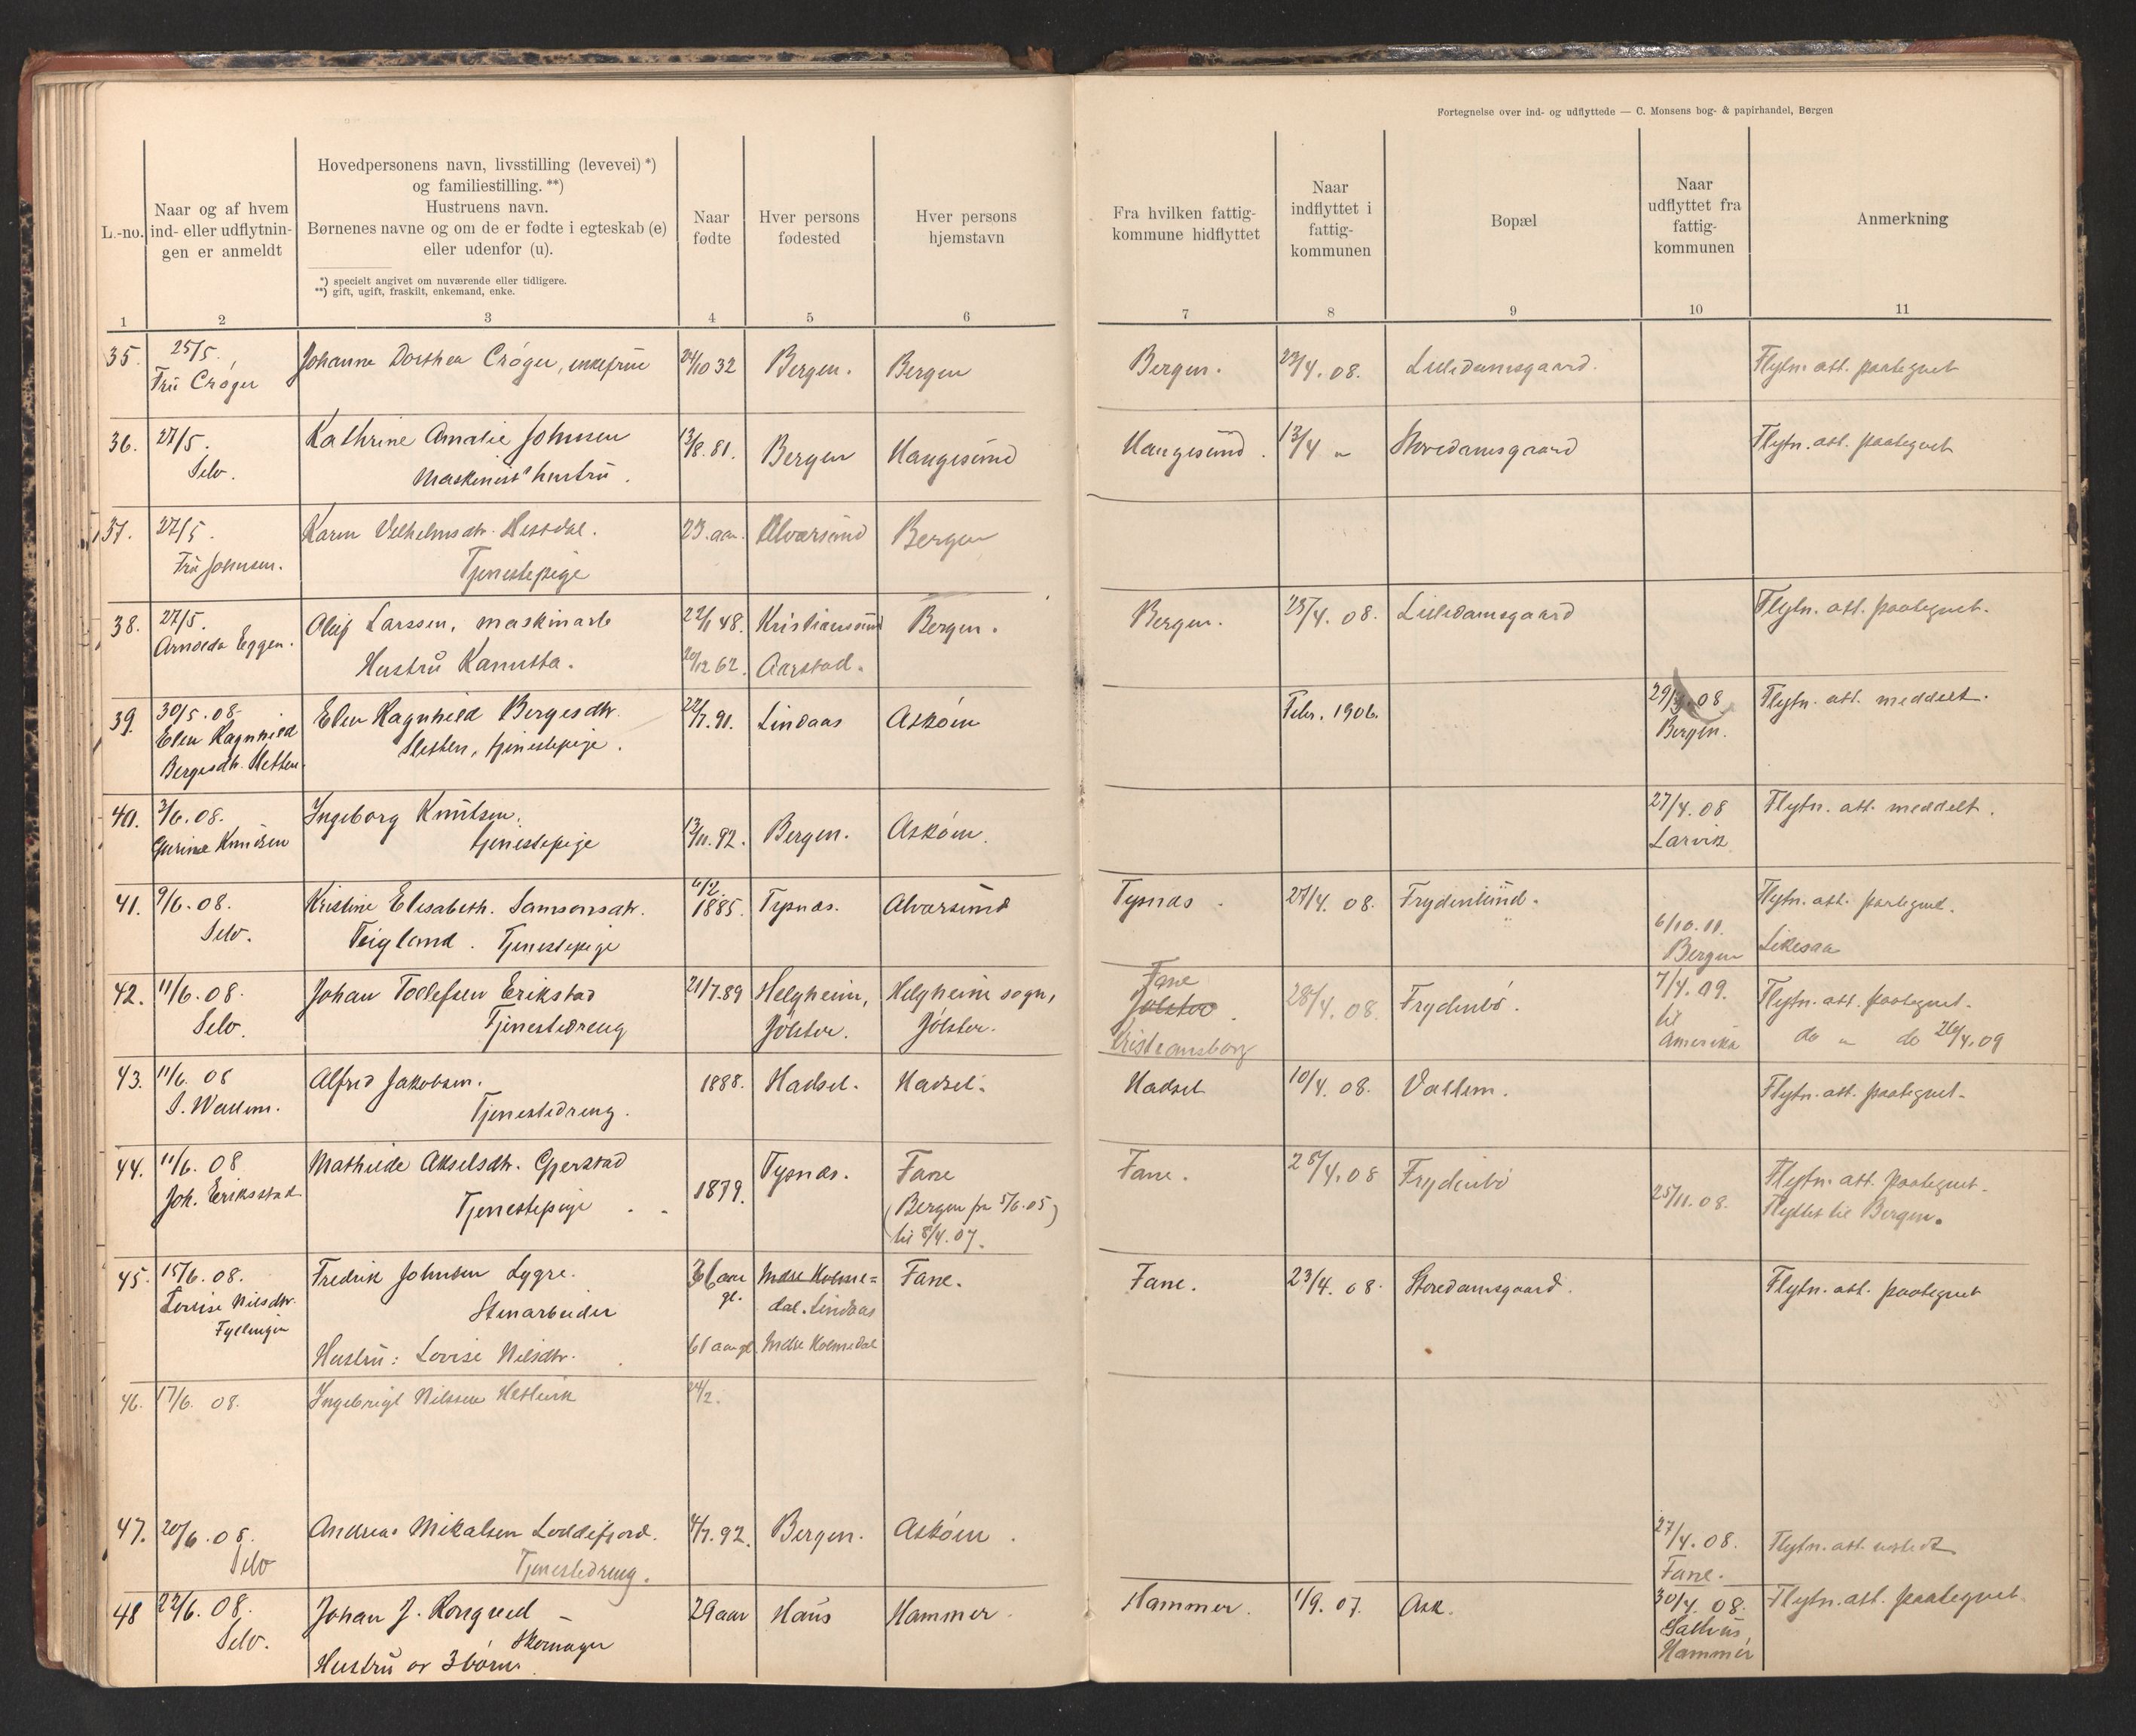 Fortegnelse over ind- og udflyttede — C. Monsens bog- & papirhandel, Bergen
L.-no.
Naar og af hvem
ind- eller udflytnin-
gen er anmeldt
Hovedpersonens navn, livsstilling (levevei) *)
og familiestilling. **)
Hustruens navn.
Børnenes navne og om de er fødte i egteskab (e)
eller udenfor (u).
*) specielt angivet om nuværende eller tidligere.
**) gift, ugift, fraskilt, enkemand, enke.
Naar
fødte
Hver persons
fødested
Hver persons
hjemstavn
Fra hvilken fattig-
kommune hidflyttet
Naar
indflyttet i
fattig-
kommunen
Bopæl
Naar
udflyttet fra
fattig-
kommunen
Anmerkning
1 2 3 4 5 6 7 8 9 10 11
35. 25/5. Johanne Dorthea Crøger, enkefrue 24/10 32 Bergen. Bergen Bergen. 23/4. 08. Lilledamsgaard. Flytn. att. paategnet
Frü Crøger
36. 27/5. Kathrine Amalie Johnsen 13/8. 81. Bergen Haugesünd Haugesünd. 13/4 " Storedamsgaard Flytn. att. paategnet
Selv. Maskinist hustrü.
37. 27/5. Karen Vilhelmsdtr. Hestdal. 23. aar. Alversünd Bergen
Frü Johnsen. Tjenestepige
38. 27/5. Oluf Larssen, maskinarb 22/1 48. Kristiansünd Bergen. Bergen. 25/4. 08. Lilledamsgaard Flytn. att. paategnet.
Arnolda Eggen. Hustrü Kanutta. 20/12 62. Aarstad.
39. 30/5. 08 Elen Ragnhild Bergesdtr. 22/7. 91. Lindaas Askøen Febr. 1906. 29/3. 08 Flytn. att. meddelt.
Elen Ragnhild Sletten, tjenestepige. Bergen.
Bergesdtr. Sletten.
40. 3/6. 08. Ingeborg Knütsen. 13/11. 92. Bergen. Askøen. 27/4. 08 Flytn. att. meddelt.
Gurine Knüdsen tjenestepige Larvik
41. 9/6. 08. Kristine Elisabeth. Samsonsdtr. 6/2 1885. Tysnæs. Alversünd Tysnæs. 27/4. 08. Frydenlünd. Flytn. att. paategnet.
Selv. Teigland. Tjenestepige 6/10. 11. Bergen Likesaa
42. 11/6. 08. Johan Tollefsen Erikstad 21/7. 89 Helgheim, Helgheim sogn, Fane 28/4. 08. Frydenbø. 7/4. 09. Flytn. att. paategnet.
Selv. Tjenestedreng Jølster. Jølster. Jølster. til do " do 26/4. 09
Kristiansborg Amerika
43. 11/6. 08 Alfred Jakobsen. 1888. Hadsel. Hadsel. Hadsel 10/4. 08. Vallem. Flytn. att. paategnet.
S. Wallem. Tjenestedreng.
44. 11/6. 08 Mathilde Akselsdtr. Gjerstad 1879. Tysnæs. Fane Fane. 28/4. 08 Frydenbø 25/11. 08. Flytn. att. paategnet.
Joh. Eriksstad Tjenestepige (Bergen fra 5/6. 05 Flyttet til Bergen.
til 8/4. 07.)
45. 15/6. 08. Fredrik Johnsen Lygre. 36 aar Indre Holme= Fane. Fane. 23/4. 08. Storedamsgaard. Flytn. att. paategnet
Lovise Nilsdtr. Stenarbeider gl. dal. Lindaas
Fyllingen
Hustrü: Lovise Nilsdtr. 61 aar gl. Indre Holmedal
46. 17/6. 08. Ingebrigt Nilssen 24/2.
47. 20/6. 08. Andreas Mikalsen Loddefjord. 4/7. 92. Bergen. Askøen. 27/4. 08. Flytn. att. utstedt
Selv Tjenestedreng. Fane.
48 22/6. 08. Johan J. Rongved 29 aar Haüs Hammer. Hammer. 1/9. 07. Ask. 30/4. 08. Flytn. att. paategnet.
Selv. Skomager
Hustrü og 3 børn. Hammer